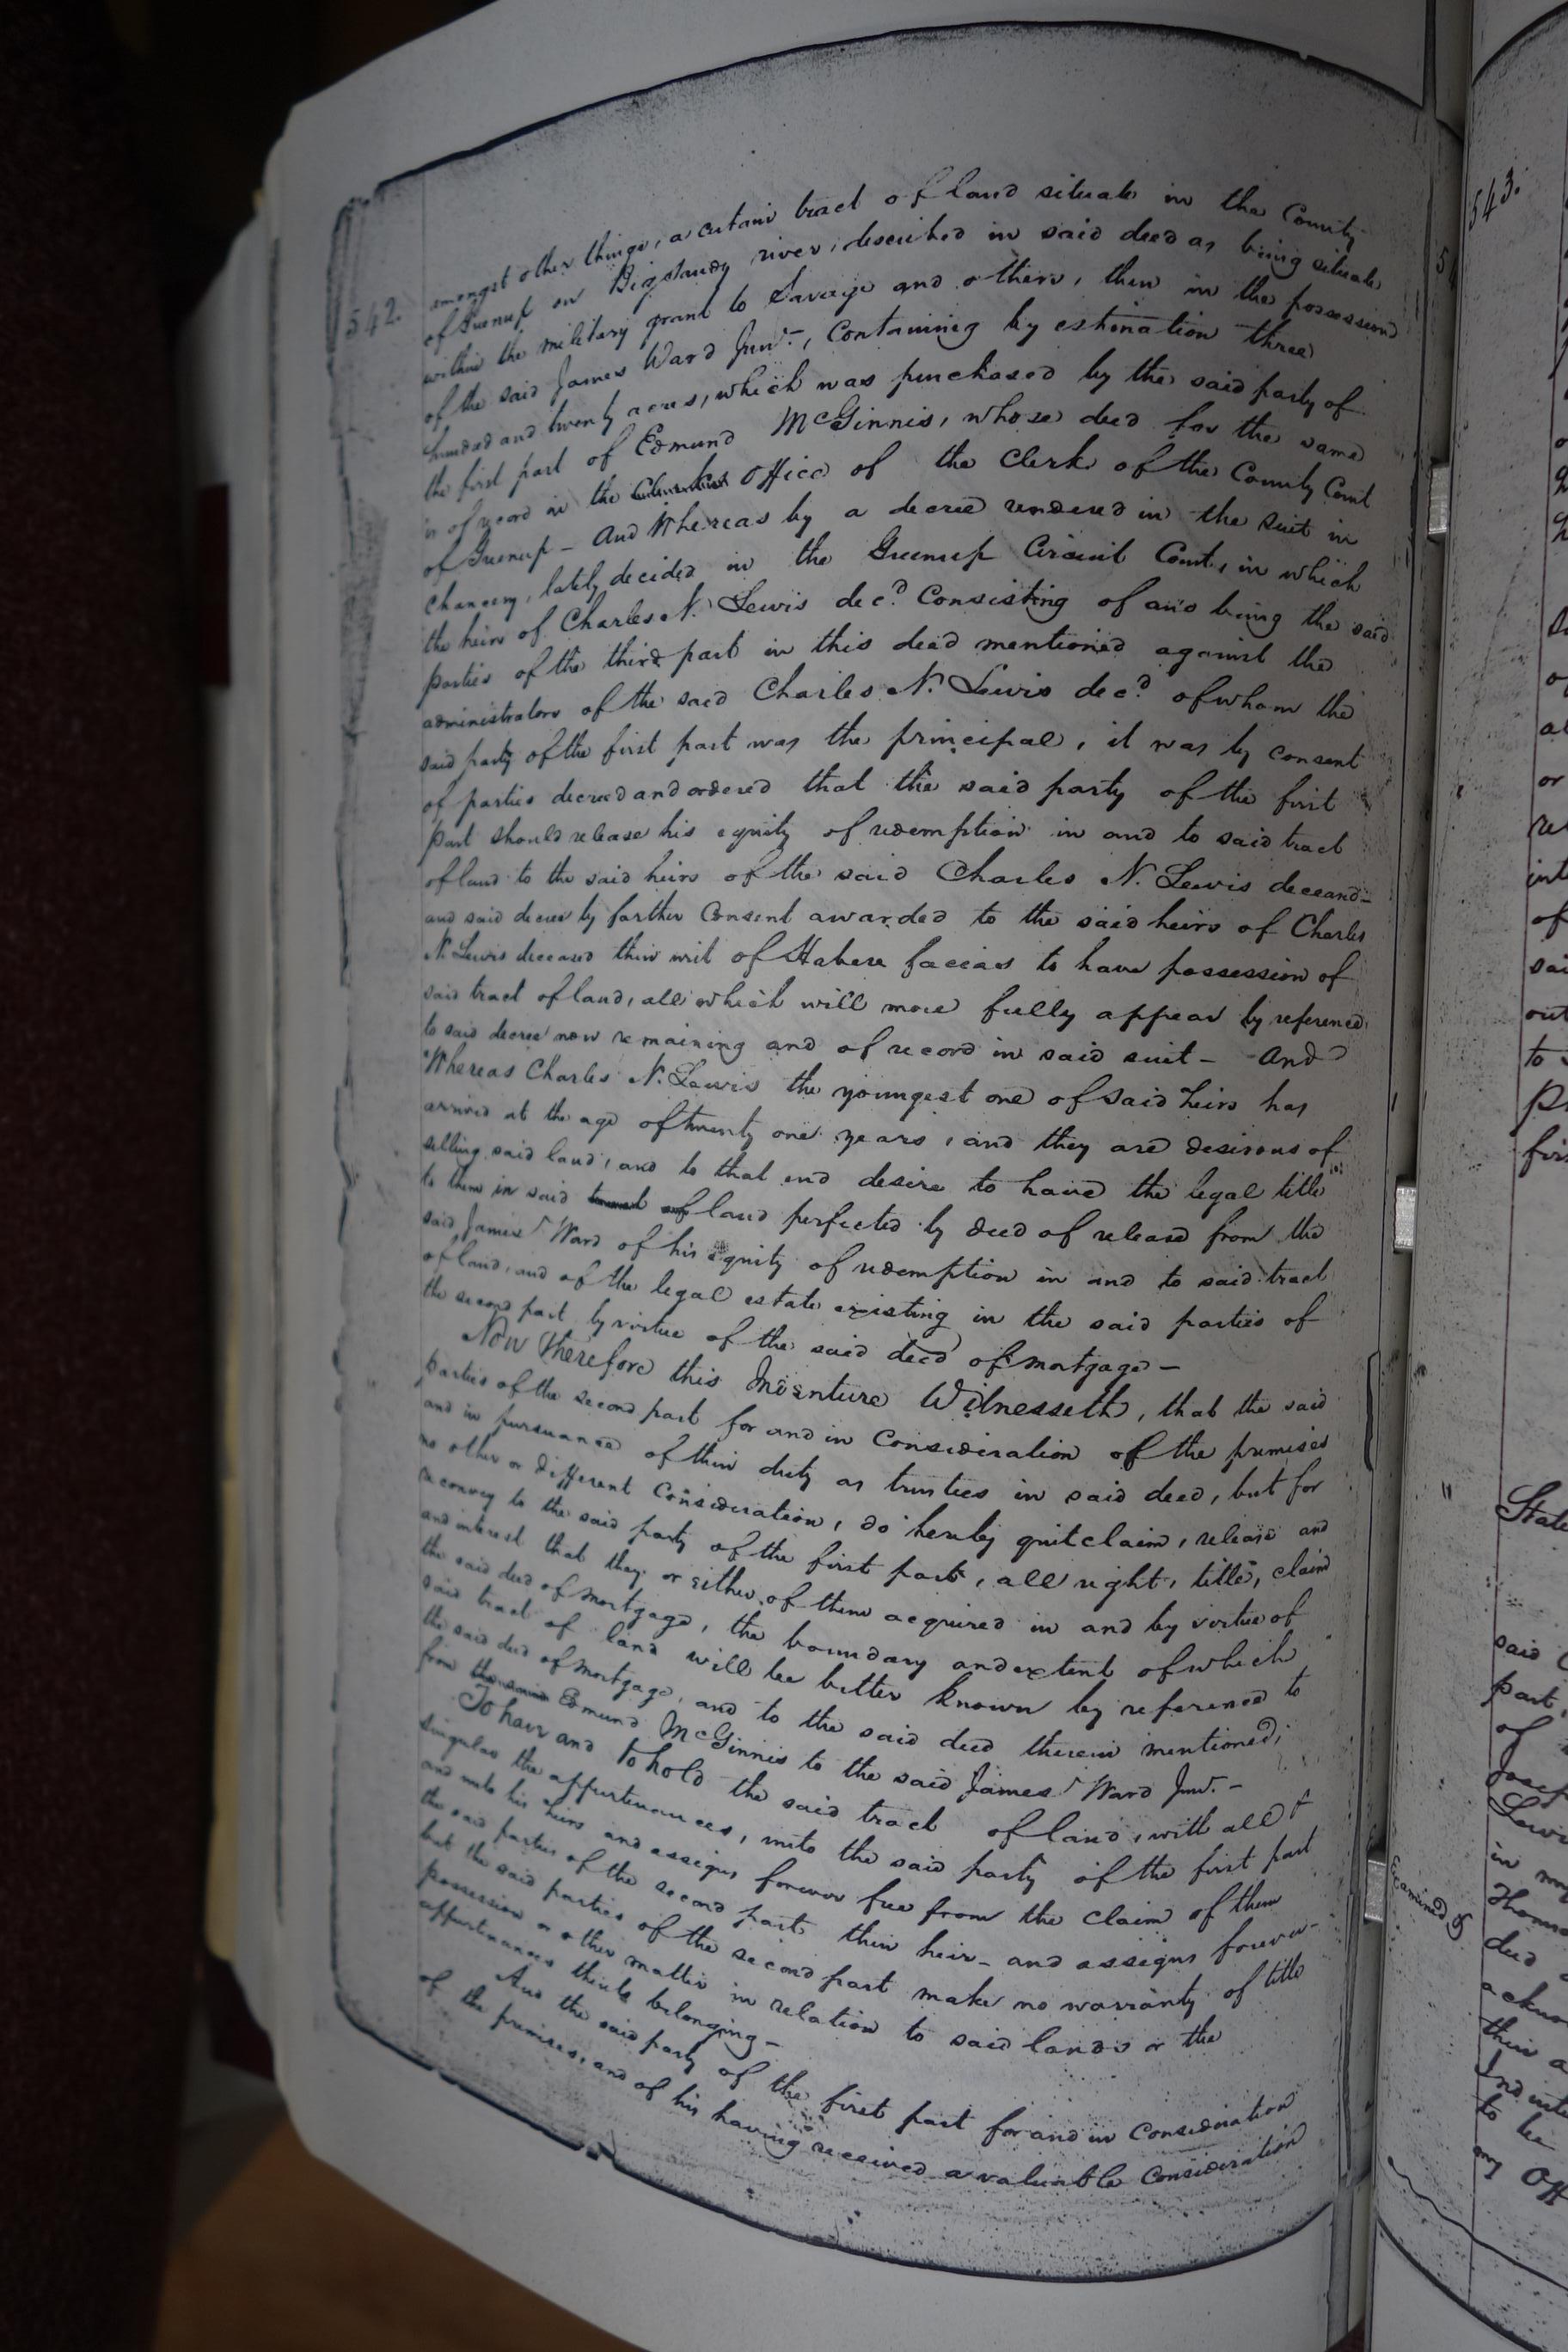 542.
amongst other things, a certain tract of land situate in the County
of Greenup on Bigsandy river, described in said deed as being situate
within the military grant to Savage and others, then in the possession
of the said James Ward Junr., Containing by estimation three
hundred and twenty acres, which was purchased by the said party of
the first part of Edmund McGinnis, whose deed for the same
is of record in the office of the Clerk of the County Court
of Greenup - And Whereas by a decree rendered in the suit in
chancery, lately decided in the Greenup Circuit Court, in which
the heirs of Charles N. Lewis decd. Consisting of and being the said
parties of the third part in this deed mentioned against the
administrators of the said Charles N. Lewis decd. of whom the
said party of the first part was the principal, it was by consent
of parties decreed and ordered that the said party of the first
part should release his equity of redemption in and to said tract
of land to the said heirs of the said Charles N. Lewis deceased -
and said decree by farther Consent awarded to the said heirs of Charles
N. Lewis deceased their writ of Habere facias to have possession of
said tract of land, all which will more fully appear by reference
to said decree now remaining and of record in said suit - And
Whereas Charles N. Lewis the youngest one of said heirs has
arrived at the age of twenty one years, and they are desirous of
selling said land, and to that end desire to have the legal title
to them in said land perfected by deed of release from the
said James Ward of his equity of redemption in and to said tract
of land, and of the legal estate existing in the said parties of
the second part by virtue of the said deed of mortgage -
Now Therefore this Indenture Witnesseth, that the said
parties of the second part for and in Consideration of the premises
and in pursuance of their duty as trustees in said deed, but for
no other or different Consideration, do hereby quitclaim, release and
reconvey to the said party of the first part, all right, title, claim
and interest that they or either of them acquired in and by virtue of
the said deed of mortgage, the boundary and extent of which
said tract of land will be better known by reference to
the said deed of mortgage, and to the said deed therein mentioned,
from the said Edmund McGinnis to the said James Ward Junr. -
To have and to hold the said tract of land, with all &
singular the appurtenances, unto the said party of the first part
and unto his heirs and assigns forever free from the claim of them
the said parties of the second part their heirs and assigns forever -
but the said parties of the second part make no warranty of title
possession or other matter in relation to said lands or the
appurtenances thereto belonging -
And the said party of the first part for and in Consideration
of the premises, and of his having received a valuable Consideration
543.
State
said
part
of
Lewis
in my
Thomas
deed
to be
my Off
Examined &